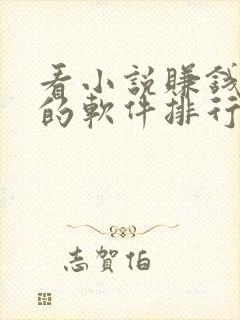 看小說賺錢
的軟件排行
志賀伯